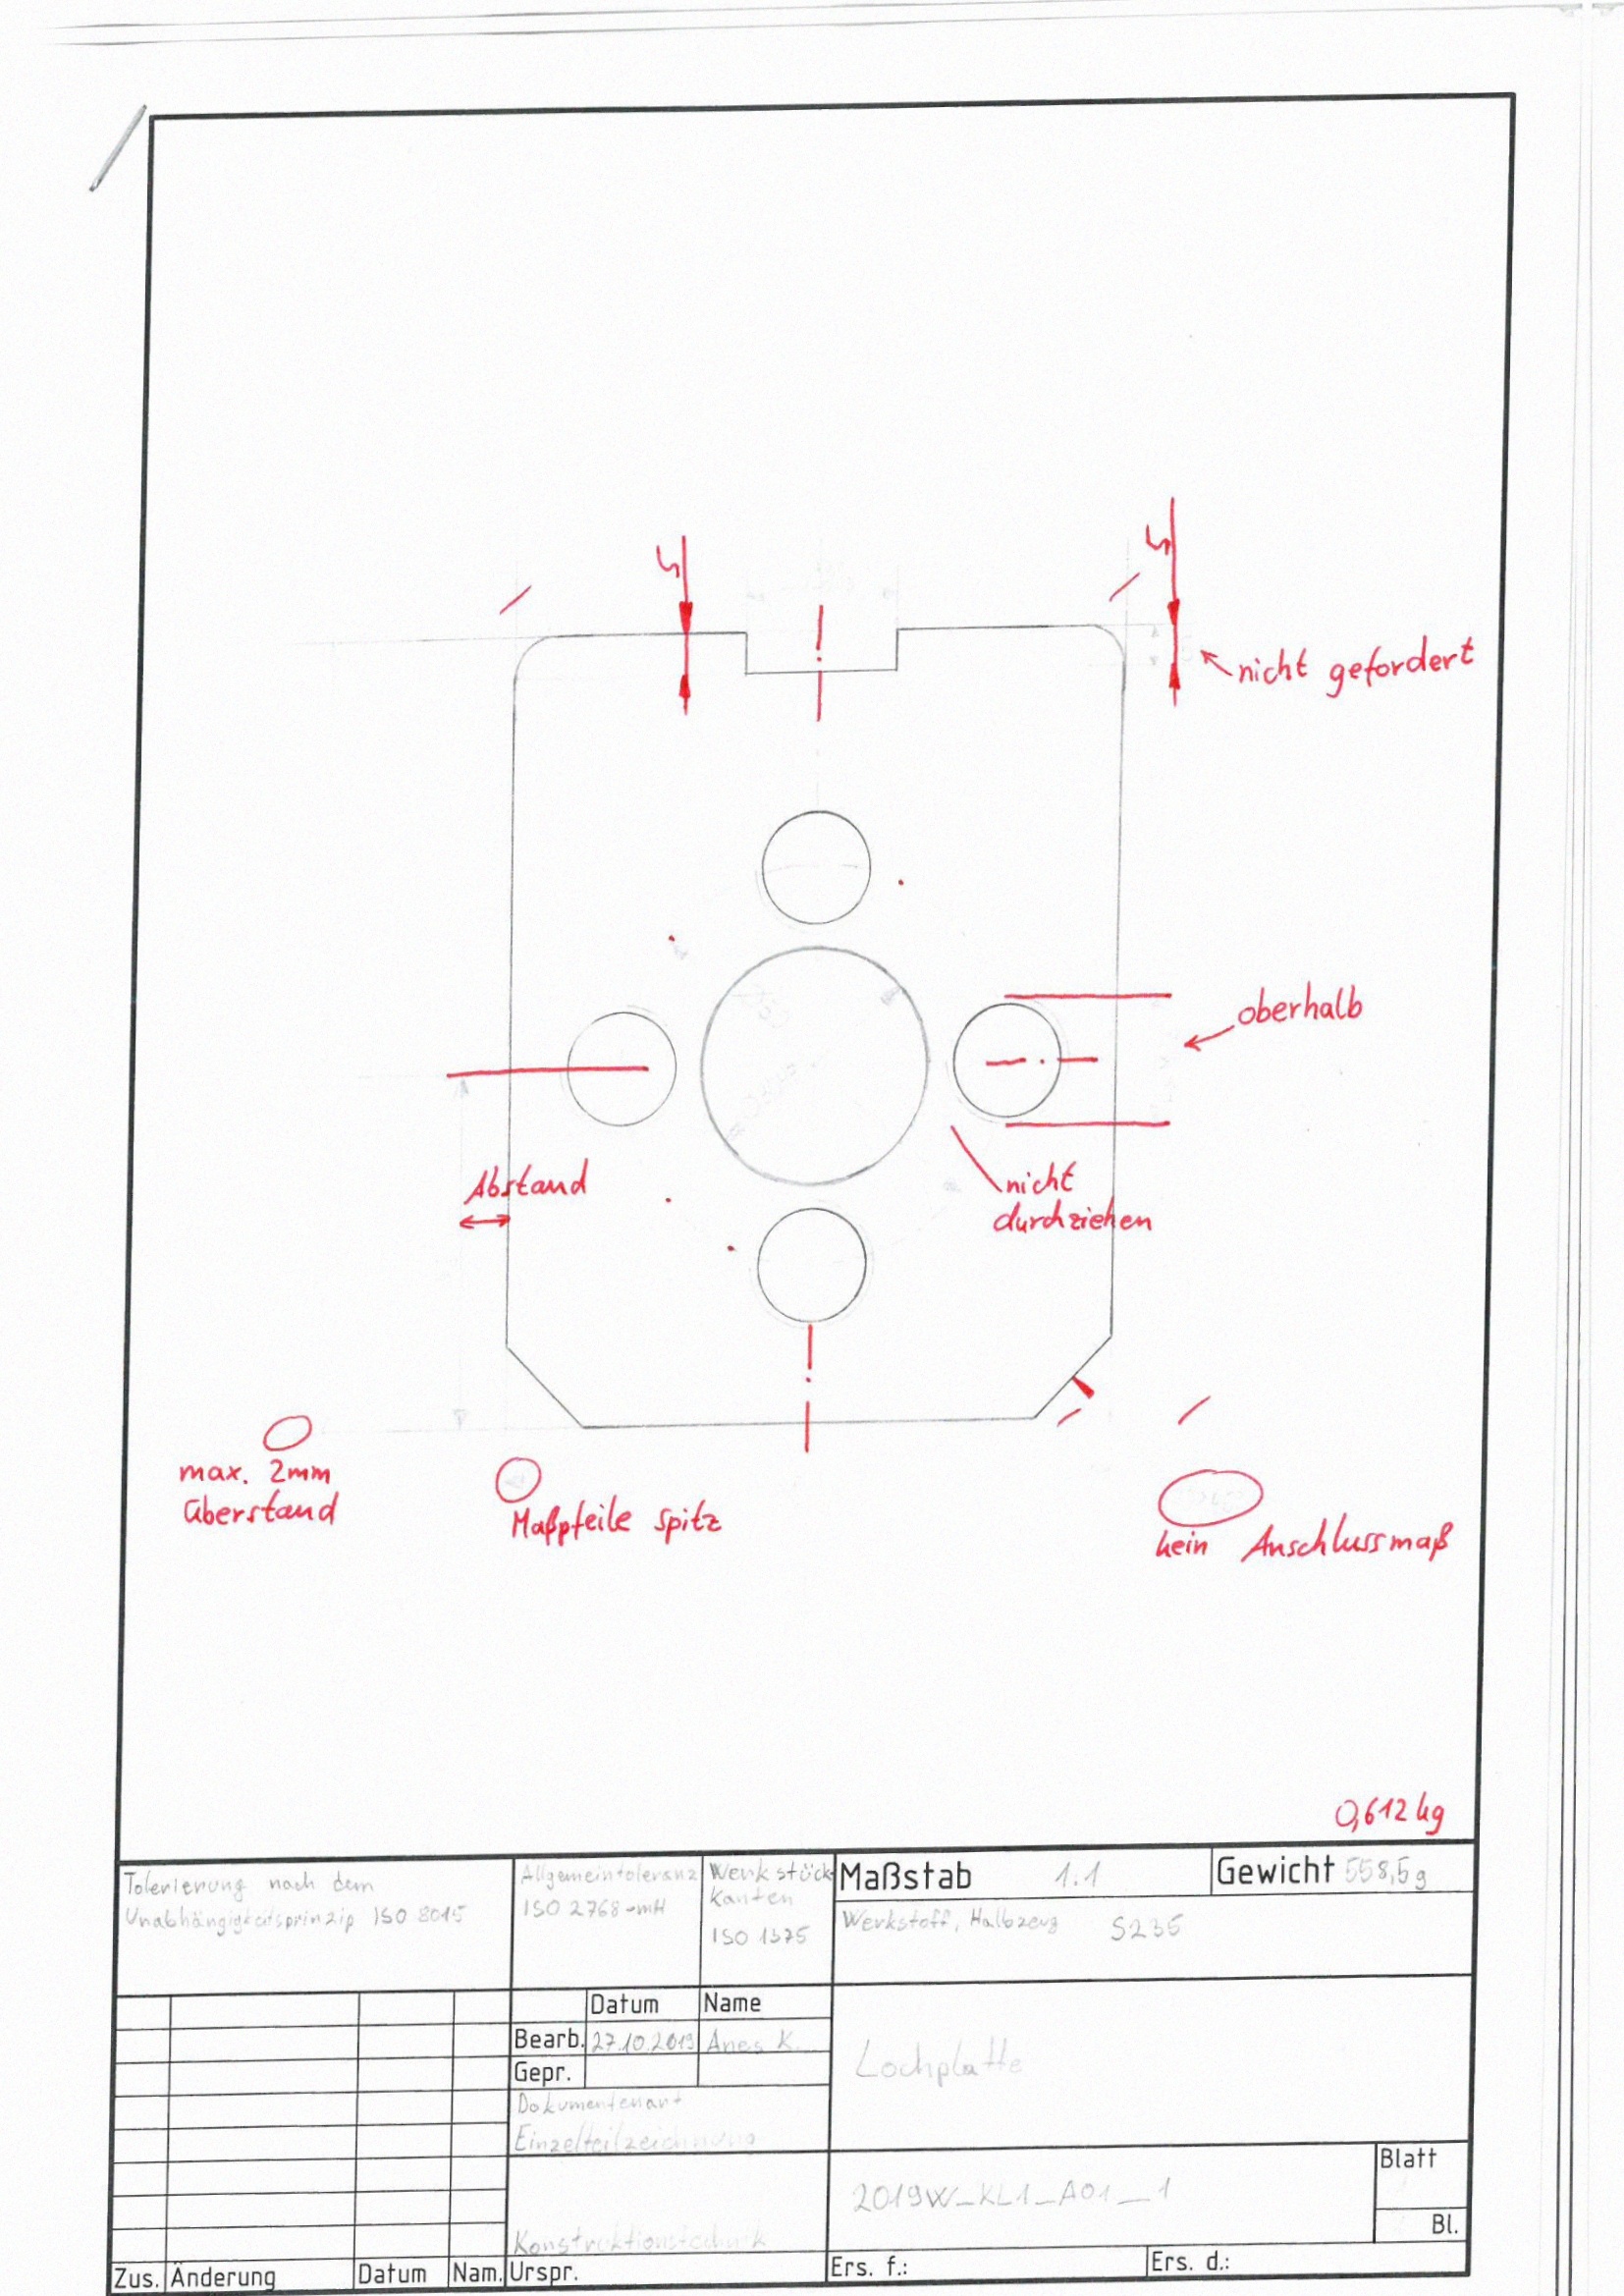 nicht gefordert
oberhalb
nicht
durchziehen
Abstand
max. 2mm
Überstand
Maßpfeile spitz
kein Anschlussmaß
0,612 kg
Tolerierung nach dem
Unabhängigkeitsprinzip ISO 8015
Allgemeintoleranz
ISO 2768-mH
Werkstück
kanten
ISO 1375
Maßstab 1:1
Gewicht 558,5g
Werkstoff, Halbzeug S235
Datum Name
Bearb. 27.10.2019 Anes K.
Gepr.
Lochplatte
Dokumentenart
Einzelteilzeichnung
2019W_KL1_A01_1
Blatt
Bl.
Konstruktionstechnik
Zus. Änderung Datum Nam. Urspr. Ers. f.: Ers. d.: